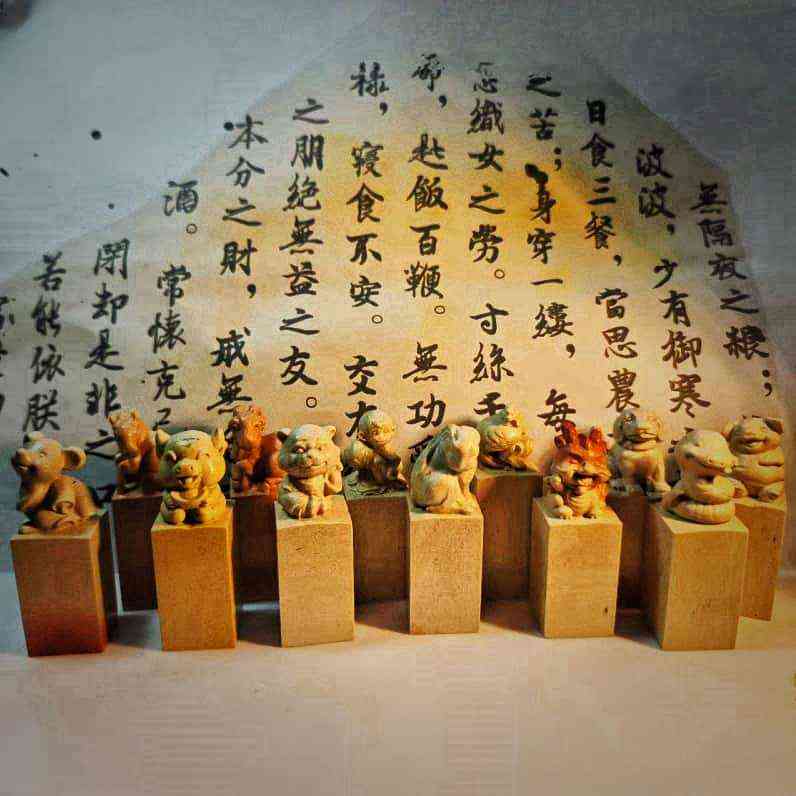 無隔夜之粮；
波波，少有御寒
日食三餐，當思農
之苦；身穿一縷，每
念織女之勞。寸絲千
命，匙飯百鞭。無功受
祿，寢食不安。交
之朋絕無益之友。
本分之財，戒無
酒。常懷克己
閉却是非之口
若能依朕